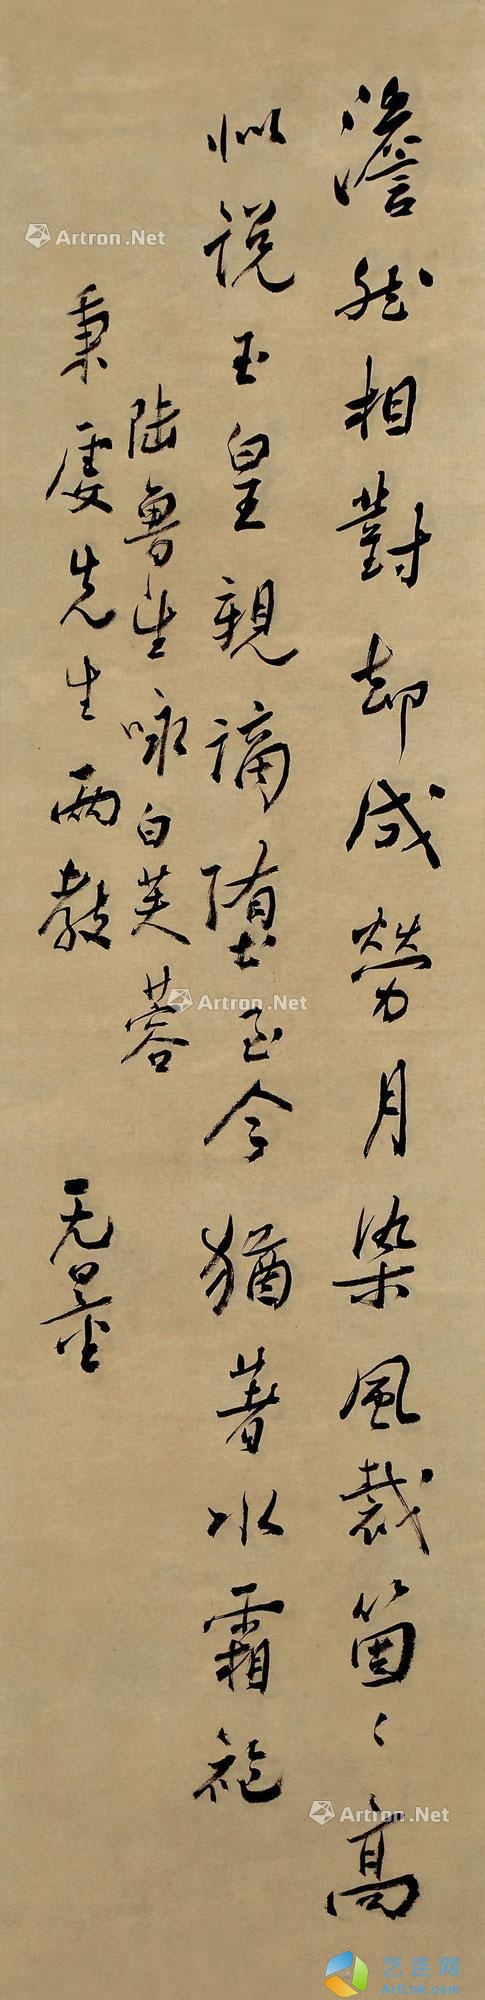 澹然相對却成勞月染風裁箇〻高
似說玉皇親謫墮至今猶著水霜袍
陆魯望咏白芙蓉
秉虔先生两教
无量
Artron.Net
Artron.Net
Artron.Net
艺连网
ArtLnk.com